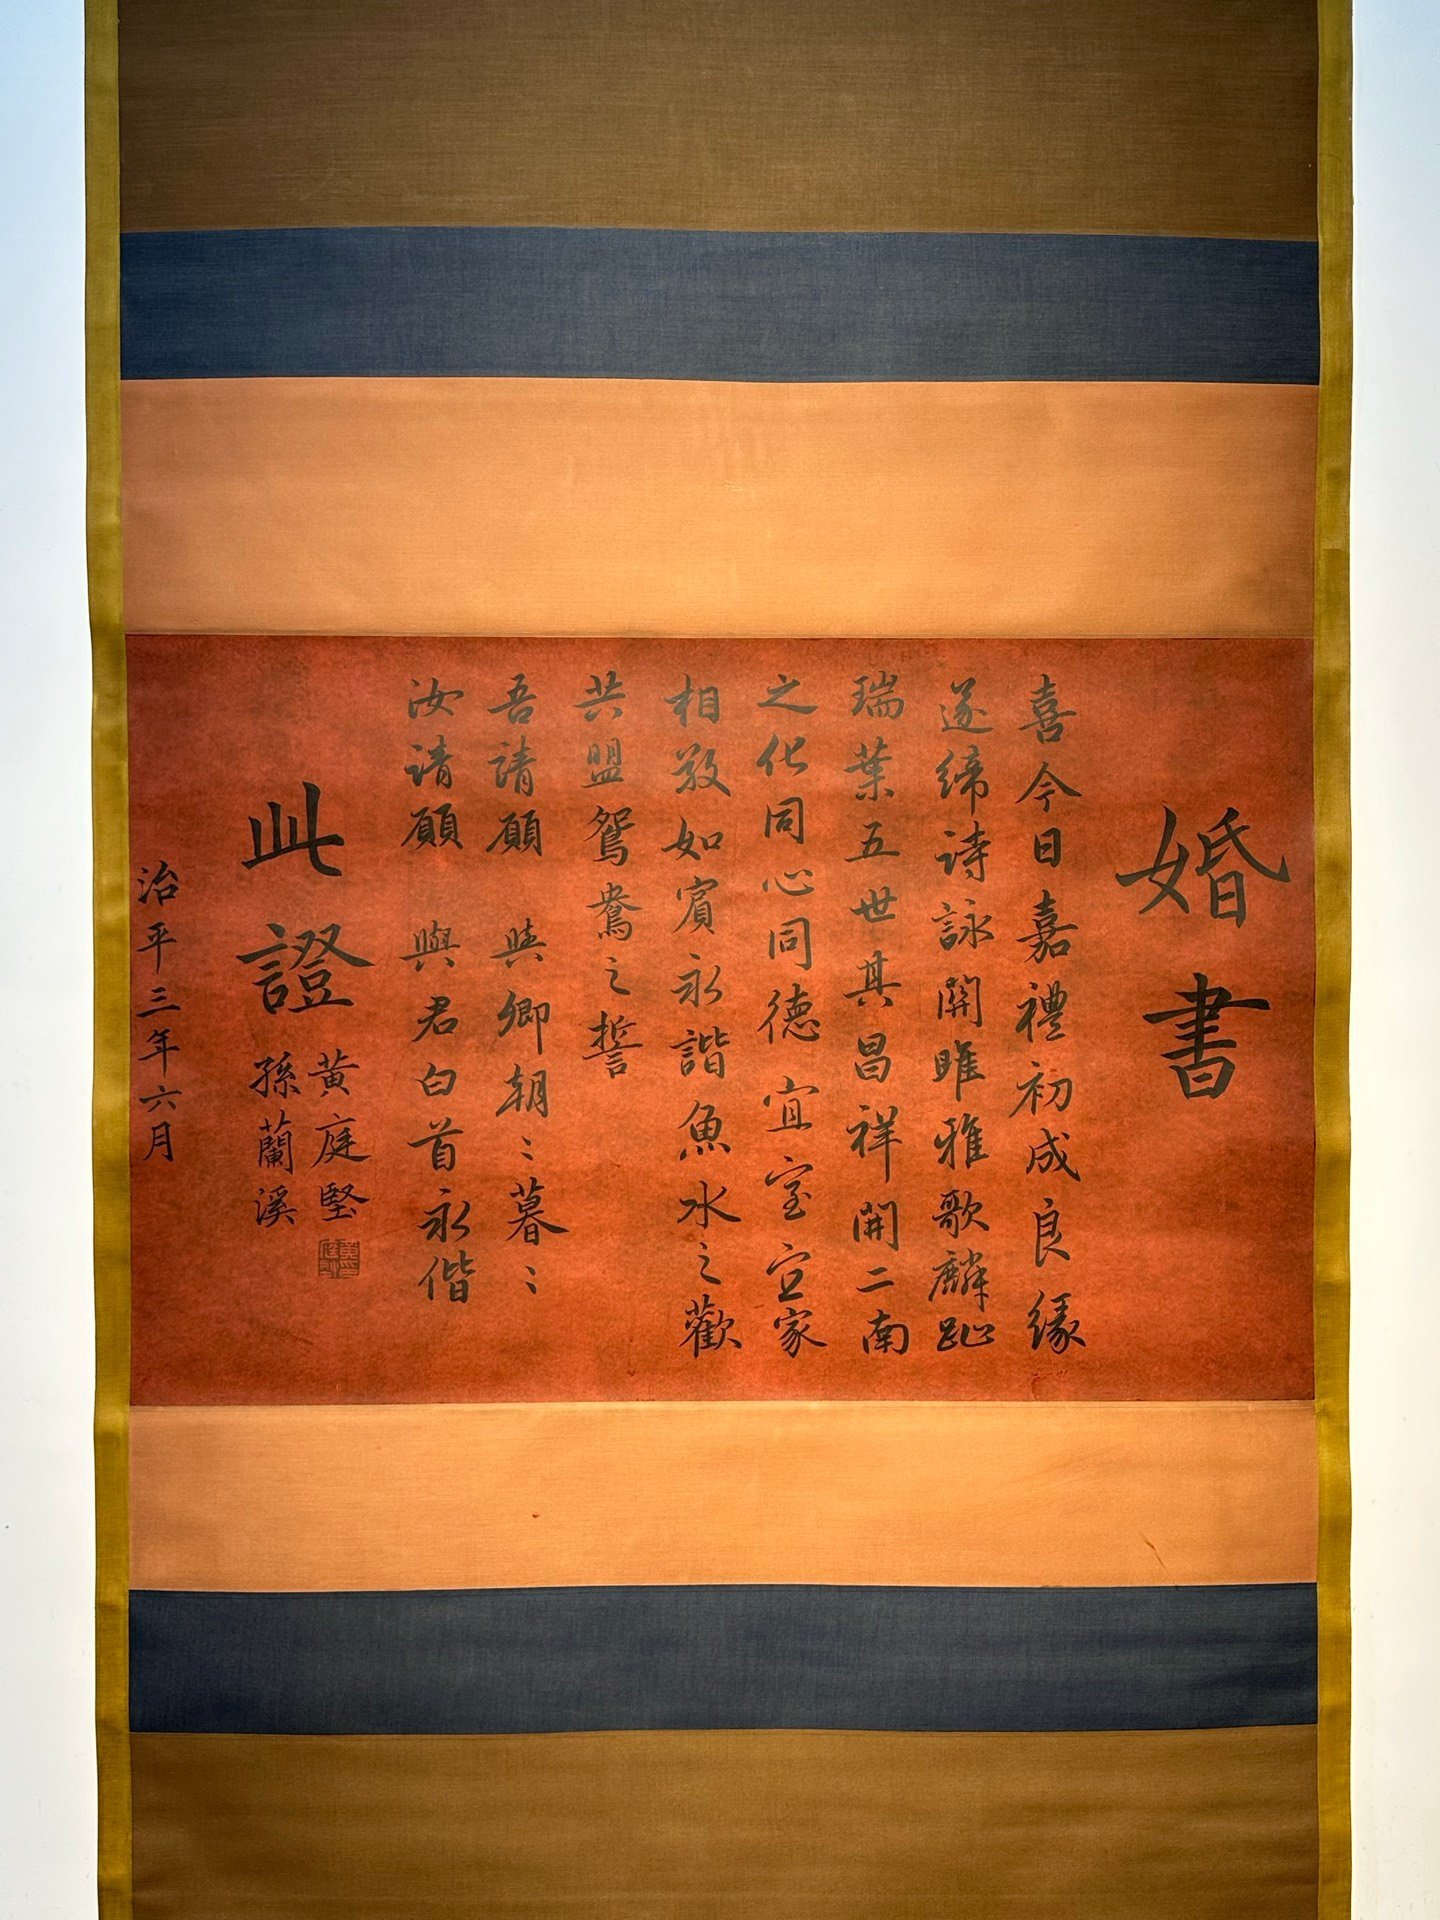 婚書
喜今日嘉禮初成良緣
遂締詩詠關雎雅歌麟趾
瑞葉五世其昌祥開二南
之化同心同德宜室宜家
相敬如賓永諧魚水之歡
共盟鴛鴦之誓
吾請願 與卿朝〻暮〻
汝請願 與君白首永偕
此證
黃庭堅
孫蘭溪
治平三年六月